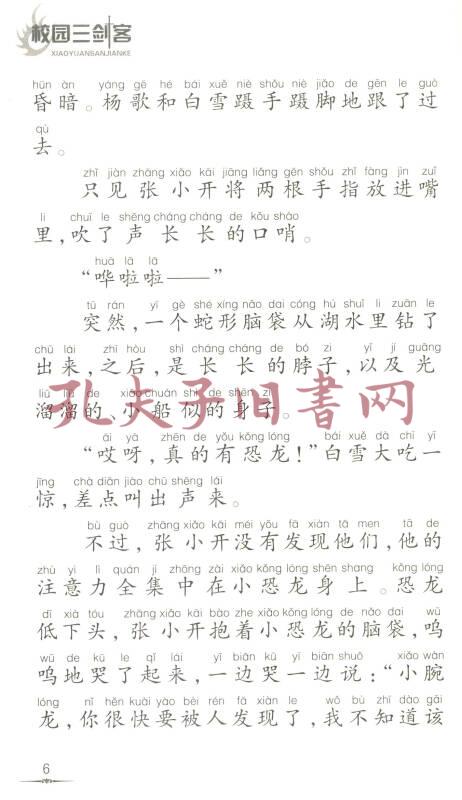 校园三剑客
XIAOYUANSANJIANKE
hūn àn yáng gē hé bái xuě niè shǒu niè jiǎo de gēn le guò
昏暗。杨歌和白雪蹑手蹑脚地跟了过
qù
去。
zhǐ jiàn zhāng xiǎo kāi jiāng liǎng gēn shǒu zhǐ fàng jìn zuǐ
只见张小开将两根手指放进嘴
li chuī le shēng cháng cháng de kǒu shào
里,吹了声长长的口哨。
huā lā lā
“哗啦啦——”
tū rán yī gè shé xíng nǎo dai cóng hú shuǐ li zuān le
突然,一个蛇形脑袋从湖水里钻了
chū lái zhī hòu shì cháng cháng de bó zi yǐ jí guāng
出来,之后,是长长的脖子,以及光
liū liū de xiǎo chuán shì de shēn zi
溜溜的、小船似的身子。
āi yā zhēn de yǒu kǒng lóng bái xuě dà chī yī
“哎呀,真的有恐龙!”白雪大吃一
jīng chà diǎn jiào chū shēng lái
惊,差点叫出声来。
bù guò zhāng xiǎo kāi méi yǒu fā xiàn tā men tā de
不过,张小开没有发现他们,他的
zhù yì lì quán jí zhōng zài xiǎo kǒng lóng shēn shang kǒng lóng
注意力全集中在小恐龙身上。恐龙
dī xià tóu zhāng xiǎo kāi bào zhe xiǎo kǒng lóng de nǎo dai wū
低下头,张小开抱着小恐龙的脑袋,呜
wū de kū le qǐ lái yī biān kū yī biān shuō xiǎo wàn
呜地哭了起来,一边哭一边说:“小腕
lóng nǐ hěn kuài yào bèi rén fā xiàn le wǒ bù zhī dào gāi
龙,你很快要被人发现了,我不知道该
6
孔夫子旧书网